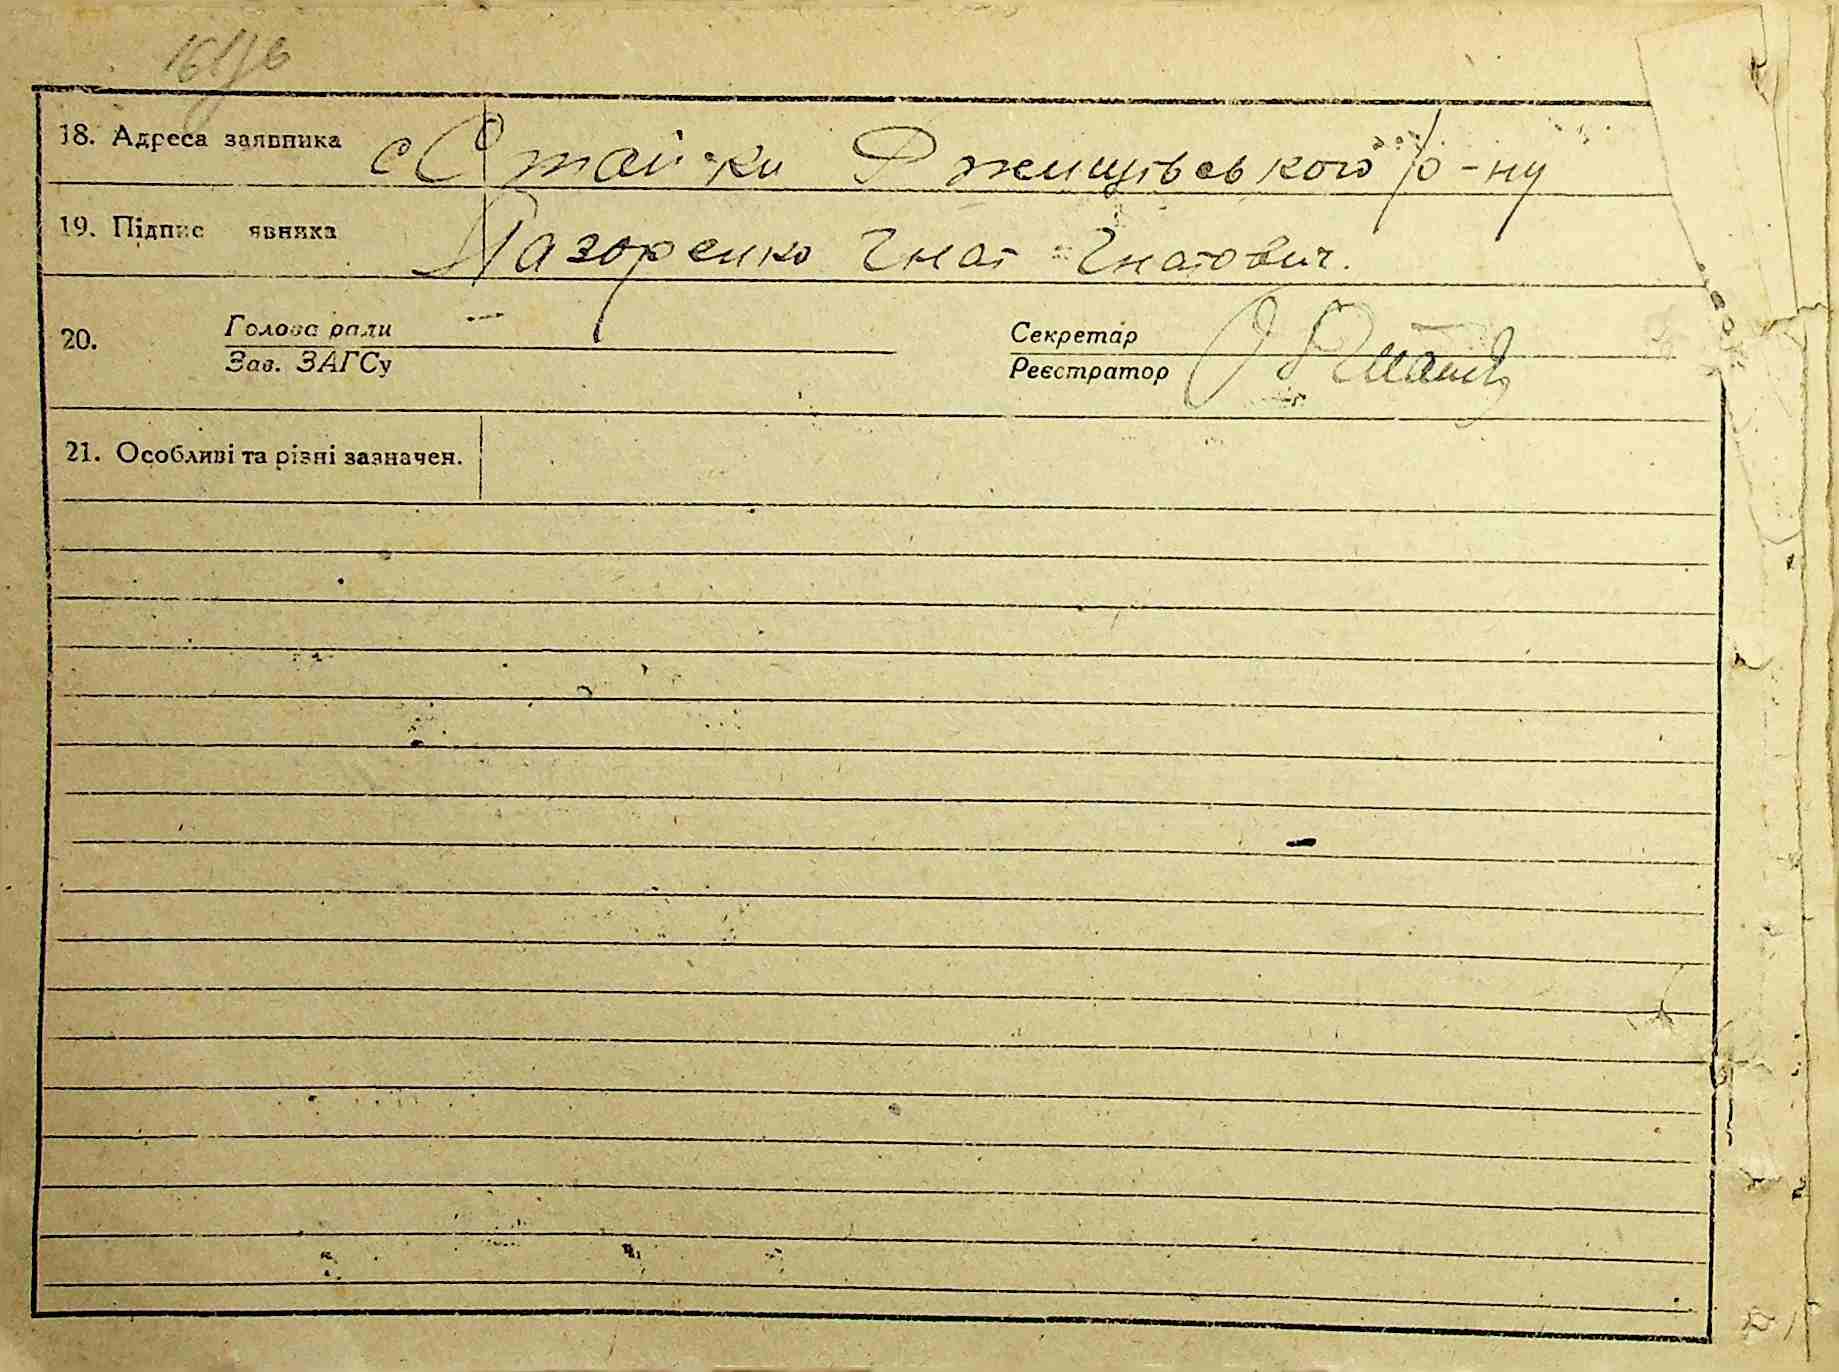 161зв
18. Адреса заявника с Стайки Ржищівського р-ну
19. Підпис явника Лазоренко Гнат Гнатович.
20. Голова ради Секретар
Зав. ЗАГСу Реєстратор
21. Особливі та різні зазначен.